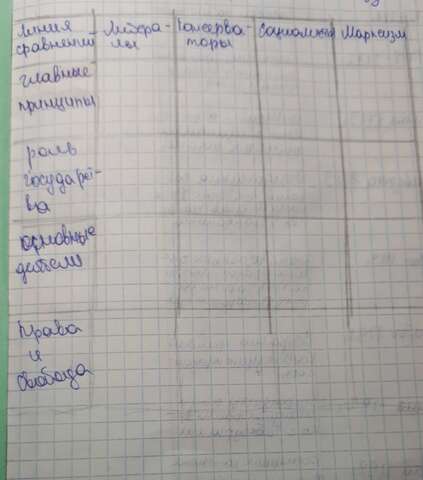 линия
сравнения
Либера-
лы
Консерва-
торы
Социалисты
Марксизм
главные
принципы
роль
государст-
ва
основные
деятели
Права
и
свобода